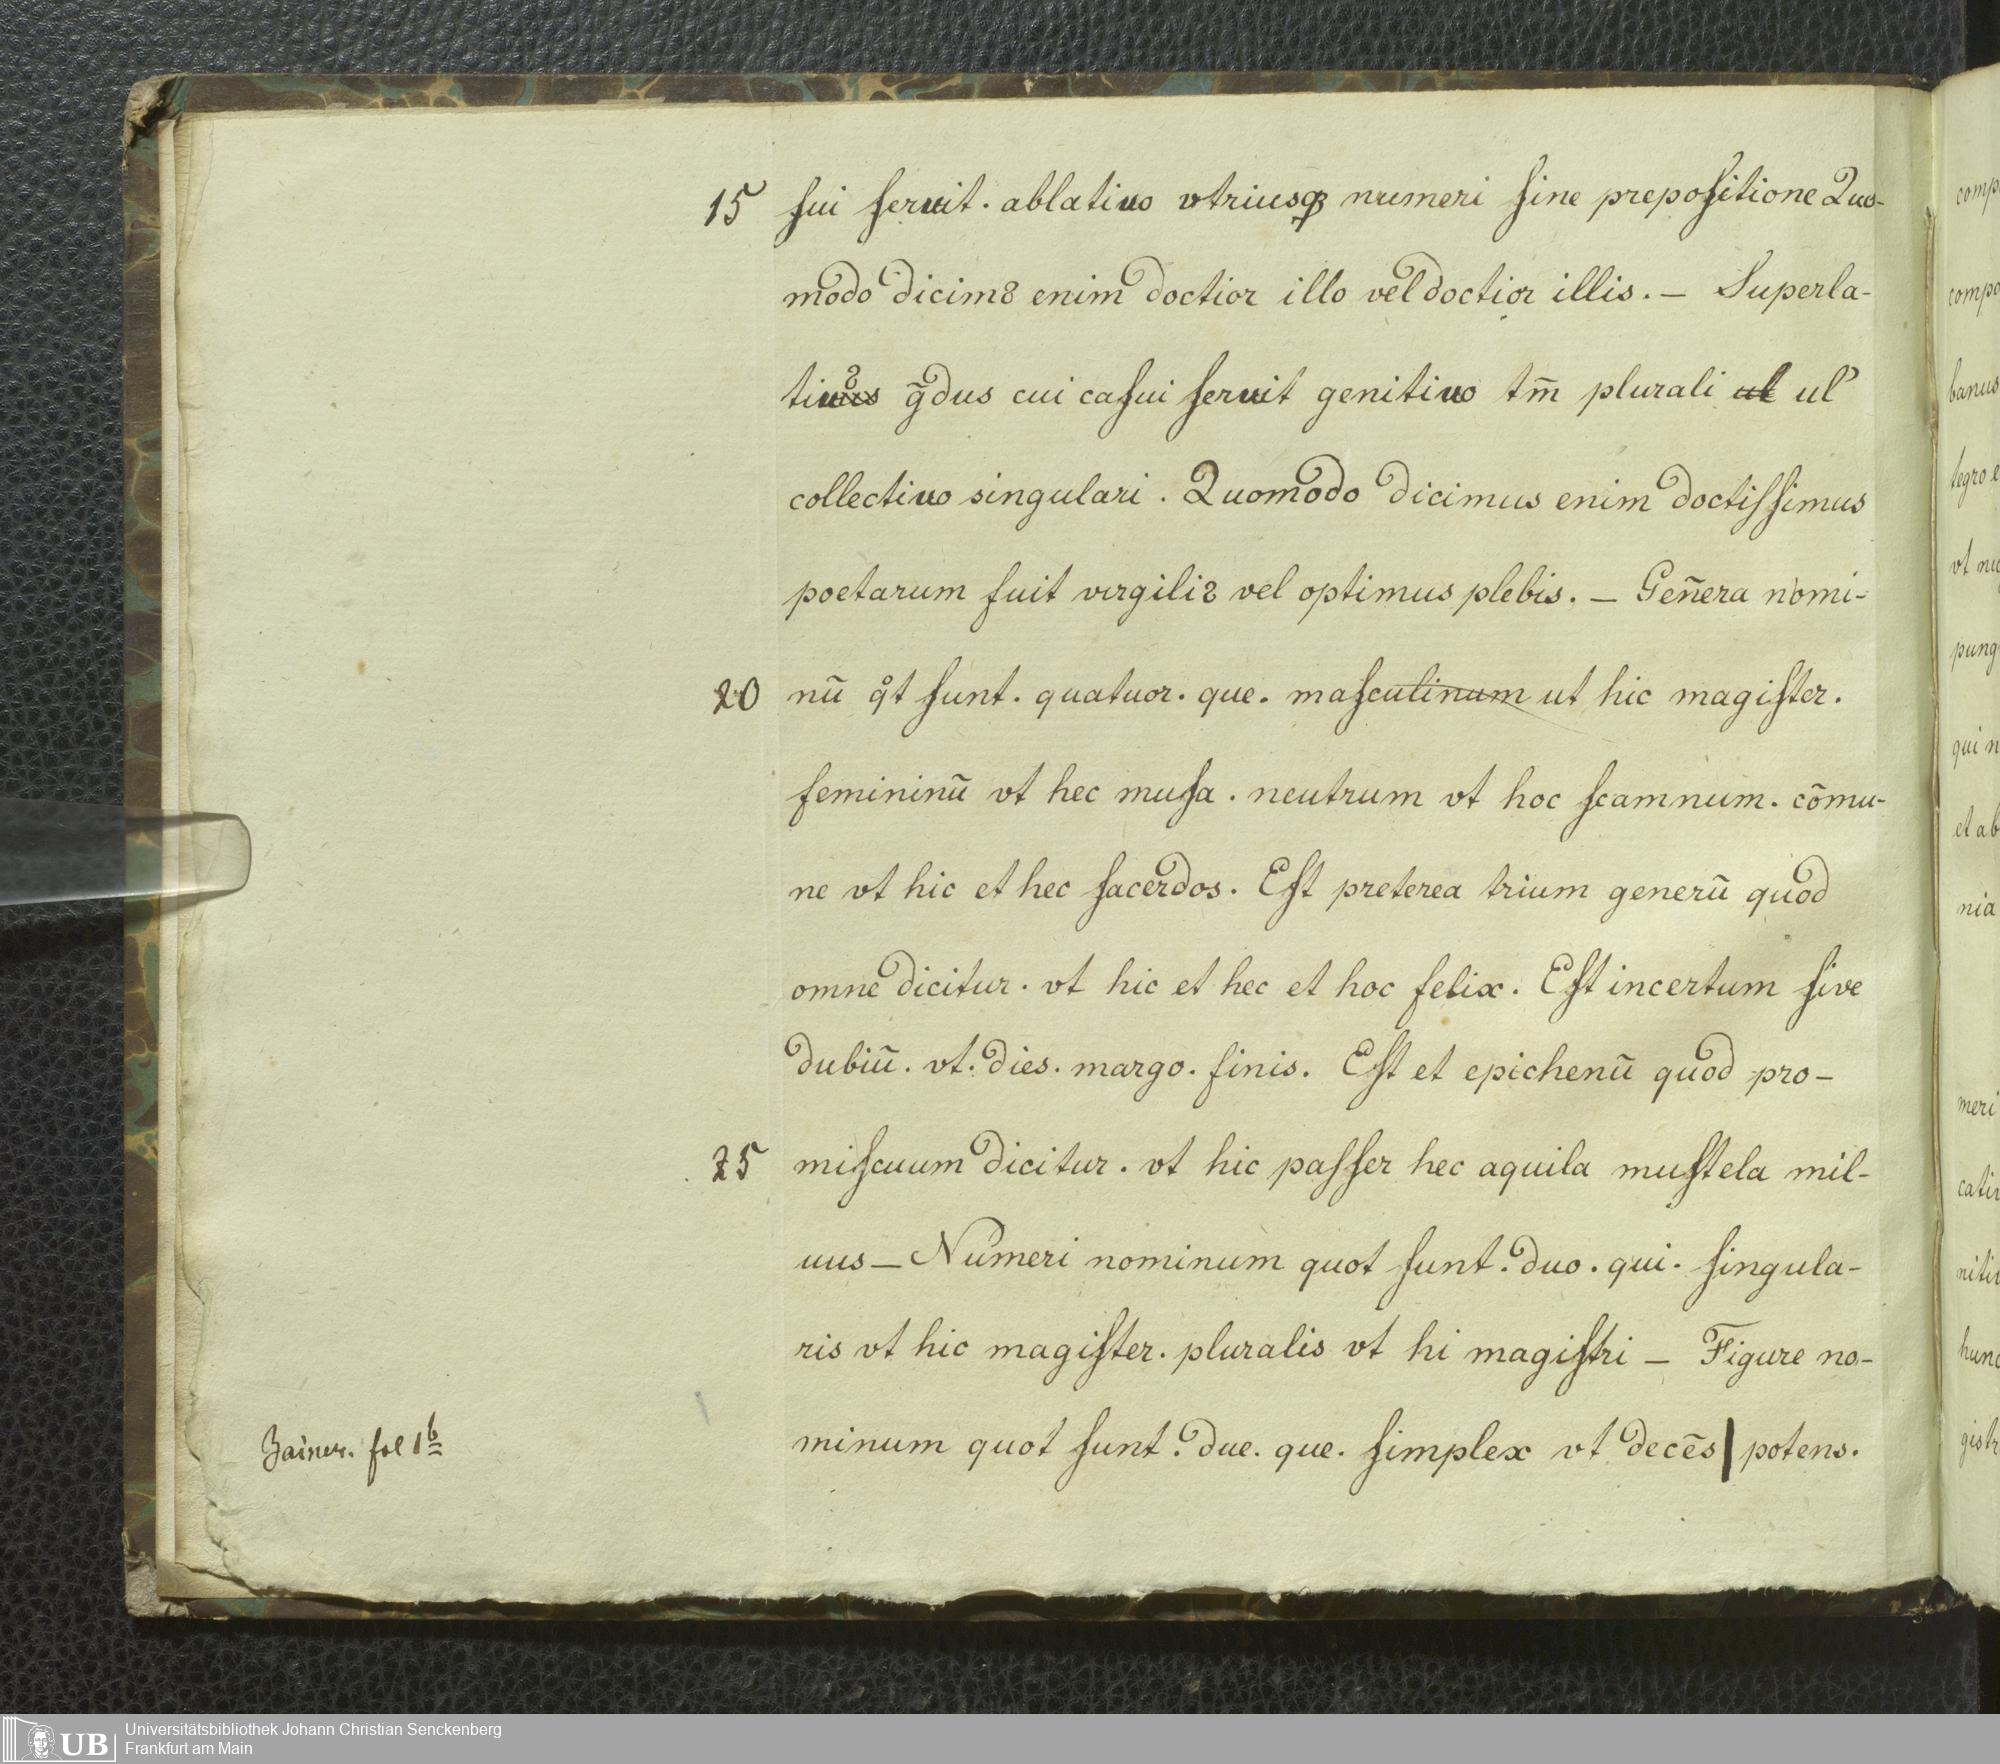 15 sui seruit. ablatiuo vtriusqꝫ numeri sine prepositione Quo-
modo dicimꝰ enim doctior illo vel doctior illis. — Superla-
tiuꝰ g̃dus cui casui seruit genitiuo tm̄ plurali ul ul’
collectiuo singulari. Quomodo dicimus enim doctissimus
poetarum fuit virgiliꝰ vel optimus plebis. — Geñera nomi-
20 nū qͦt sunt. quatuor. que. masculinum ut hic magister.
femininū vt hec musa. neutrum vt hoc scamnum. cōmu-
ne vt hic et hec sacerdos. Est preterea trium generū quod
omne dicitur. vt hic et hec et hoc felix. Est incertum sive
dubiū. vt. dies. margo. finis. Est et epichenū quod pro-
25 miscuum dicitur. vt hic passer hec aquila mustela mil-
uus — Numeri nominum quot sunt. duo. qui. singula-
ris vt hic magister. pluralis vt hi magistri — Figure no-
minum quot sunt. due. que. simplex vt decēs | potens.
Zainer. fol 1b
comp
compo
banus
tegro e
vt nu
pung
qui n
et ab
nia
meri
catiu
nitiu
hunc
gistr
UB Universitätsbibliothek Johann Christian Senckenberg
Frankfurt am Main